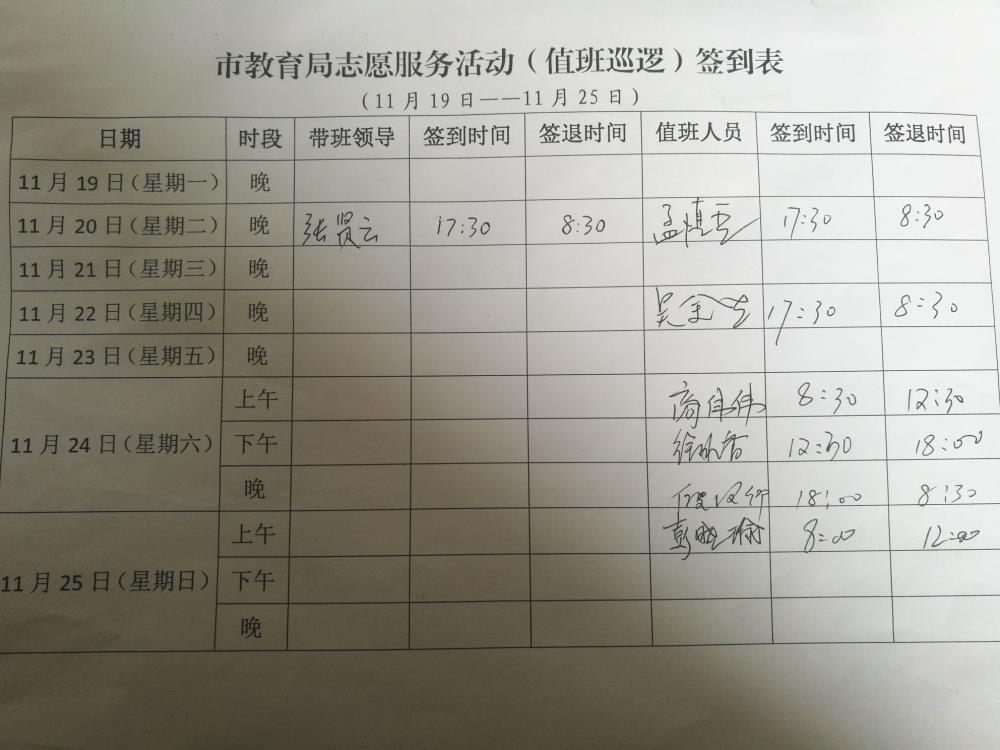 市教育局志愿服务活动（值班巡逻）签到表
（11月19日——11月25日）
日期 时段 带班领导 签到时间 签退时间 值班人员 签到时间 签退时间
11月19日（星期一） 晚
11月20日（星期二） 晚 张贤云 17:30 8:30 孟慎言 17:30 8:30
11月21日（星期三） 晚
11月22日（星期四） 晚 吴 17:30 8:30
11月23日（星期五） 晚
11月24日（星期六） 上午 商伟伟 8:30 12:30
下午 徐 12:30 18:00
晚 18:00 8:30
11月25日（星期日） 上午 彭 8:00 12:00
下午
晚